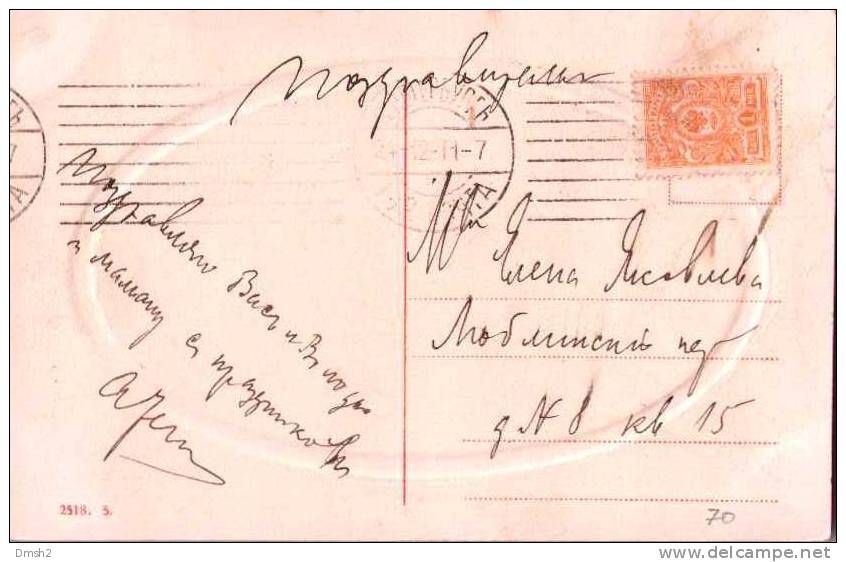 Поздравительн
24-12-11-7
Поздравляю Васъ и Володю
и мамашу съ праздникомъ
Елена Яковлева
Люблинскій пер
д N 8 кв 15
2518. 5.
70
Dmsh2
www.delcampe.net